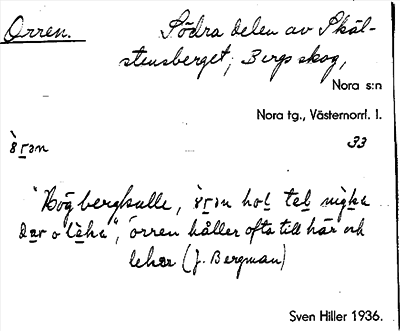 Orren.
Södra delen av Skäl-
stensberget, Bergs skog,
Nora s:n
Nora tg., Västernorrl. l.
33
"Hög bergkulle,
", orren håller ofta till här och
leker (J. Bergman)
Sven Hiller 1936.